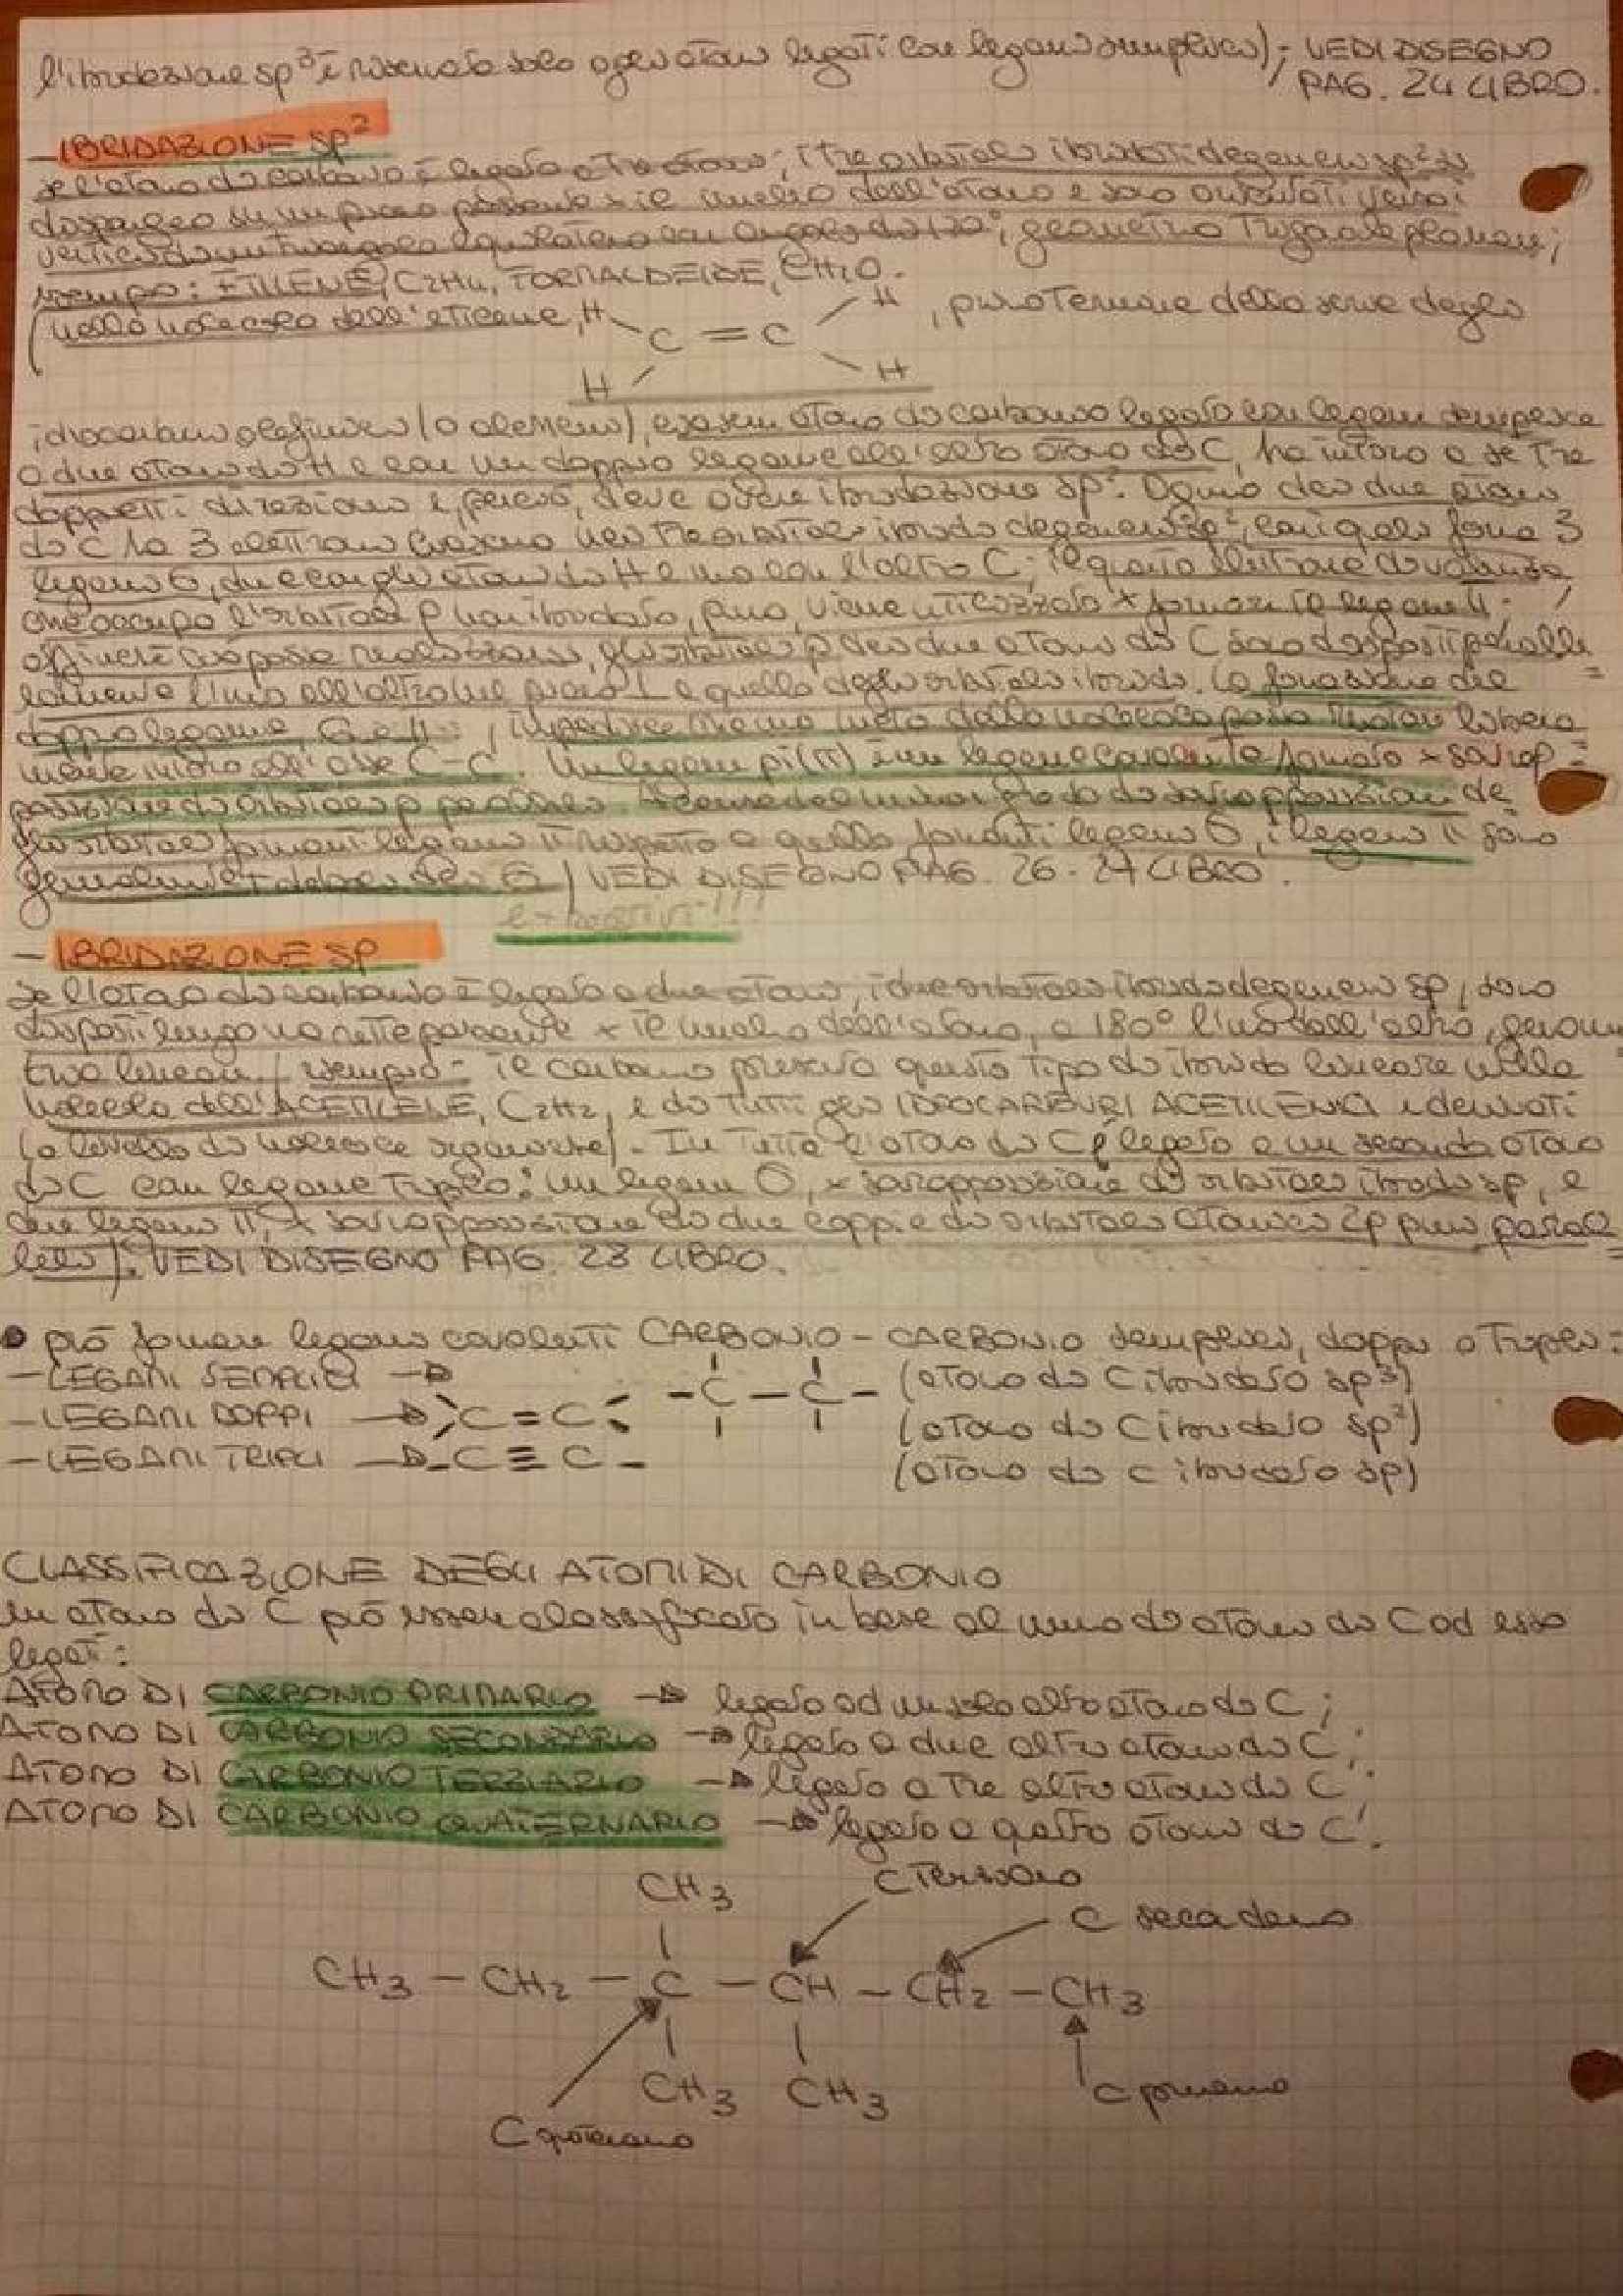 l'ibridazione sp³ è riservata solo agli atomi legati con legami semplici); VEDI DISEGNO
PAG. 24 LIBRO.
- IBRIDAZIONE SP²
se l'atomo di carbonio è legato a tre atomi; i tre orbitali ibridi degeneri sp² si
dispongono su un piano passante x il nucleo dell'atomo e sono orientati verso i
vertici di un triangolo equilatero con angolo di 120°; geometria trigonale planare;
esempio: ETILENE, C2H4, FORMALDEIDE, CH2O.
(nella molecola dell'etilene, H H , primo termine della serie degli
C = C
H H
idrocarburi olefinici (o alcheni), ciascun atomo di carbonio legato con legami semplici
a due atomi di H e con un doppio legame all'altro atomo di C, ha intorno a sé tre
direzioni e, perciò, deve avere ibridazione sp². Ognuno dei due atomi
di C ha 3 elettroni ciascuno nei tre orbitali ibridi degeneri sp², con i quali forma 3
legami σ, due con gli atomi di H e uno con l'altro C; il quarto elettrone di valenza,
che occupa l'orbitale p non ibridato, puro, viene utilizzato x formare il legame π;
affinché ciò possa realizzarsi, gli orbitali p dei due atomi di C sono disposti paralle=
lamente l'uno all'altro nel piano ⊥ a quello degli orbitali ibridi. La formazione del
doppio legame, σ e π, impedisce che una metà della molecola possa ruotare libera
mente intorno all'asse C-C. Un legame pi (π) è un legame covalente formato x sovrap=
posizione di orbitali p paralleli. A causa del minor grado di sovrapposizione de
gli orbitali formanti legami π rispetto a quelli formanti legami σ, i legami π sono
generalmente + deboli dei σ) VEDI DISEGNO PAG. 26-27 LIBRO.
e + reattivi!!!
- IBRIDAZIONE SP
se l'atomo di carbonio è legato a due atomi, i due orbitali ibridi degeneri sp, sono
disposti lungo una retta passante x il nucleo dell'atomo, a 180° l'uno dall'altro, geome
tria lineare / esempio: il carbonio presenta questo tipo di ibrido lineare nella
molecola dell'ACETILENE, C2H2, e di tutti gli IDROCARBURI ACETILENICI e derivati
(a livello di molecole organiche). In tutte l'atomo di C è legato a un secondo atomo
di C con legame triplo: un legame σ, x sovrapposizione di orbitali ibridi sp, e
due legami π, x sovrapposizione di due coppie di orbitali atomici 2p puri paral=
leli). VEDI DISEGNO PAG. 28 LIBRO.
• può formare legami covalenti CARBONIO - CARBONIO semplici, doppi o tripli:
- LEGAMI SEMPLICI → - C - C - (atomo di C ibridato sp³)
- LEGAMI DOPPI → C = C (atomo di C ibridato sp²)
- LEGAMI TRIPLI → - C ≡ C - (atomo di C ibridato sp)
CLASSIFICAZIONE DEGLI ATOMI DI CARBONIO
un atomo di C può essere classificato in base al num di atomi di C ad esso
legati:
ATOMO DI CARBONIO PRIMARIO → legato ad un solo altro atomo di C;
ATOMO DI CARBONIO SECONDARIO → legato a due altri atomi di C;
ATOMO DI CARBONIO TERZIARIO → legato a tre altri atomi di C;
ATOMO DI CARBONIO QUATERNARIO → legato a quattro atomi di C.
CH3 C terziario
C secondario
CH3 - CH2 - C - CH - CH2 - CH3
CH3 CH3 C primario
C quaternario